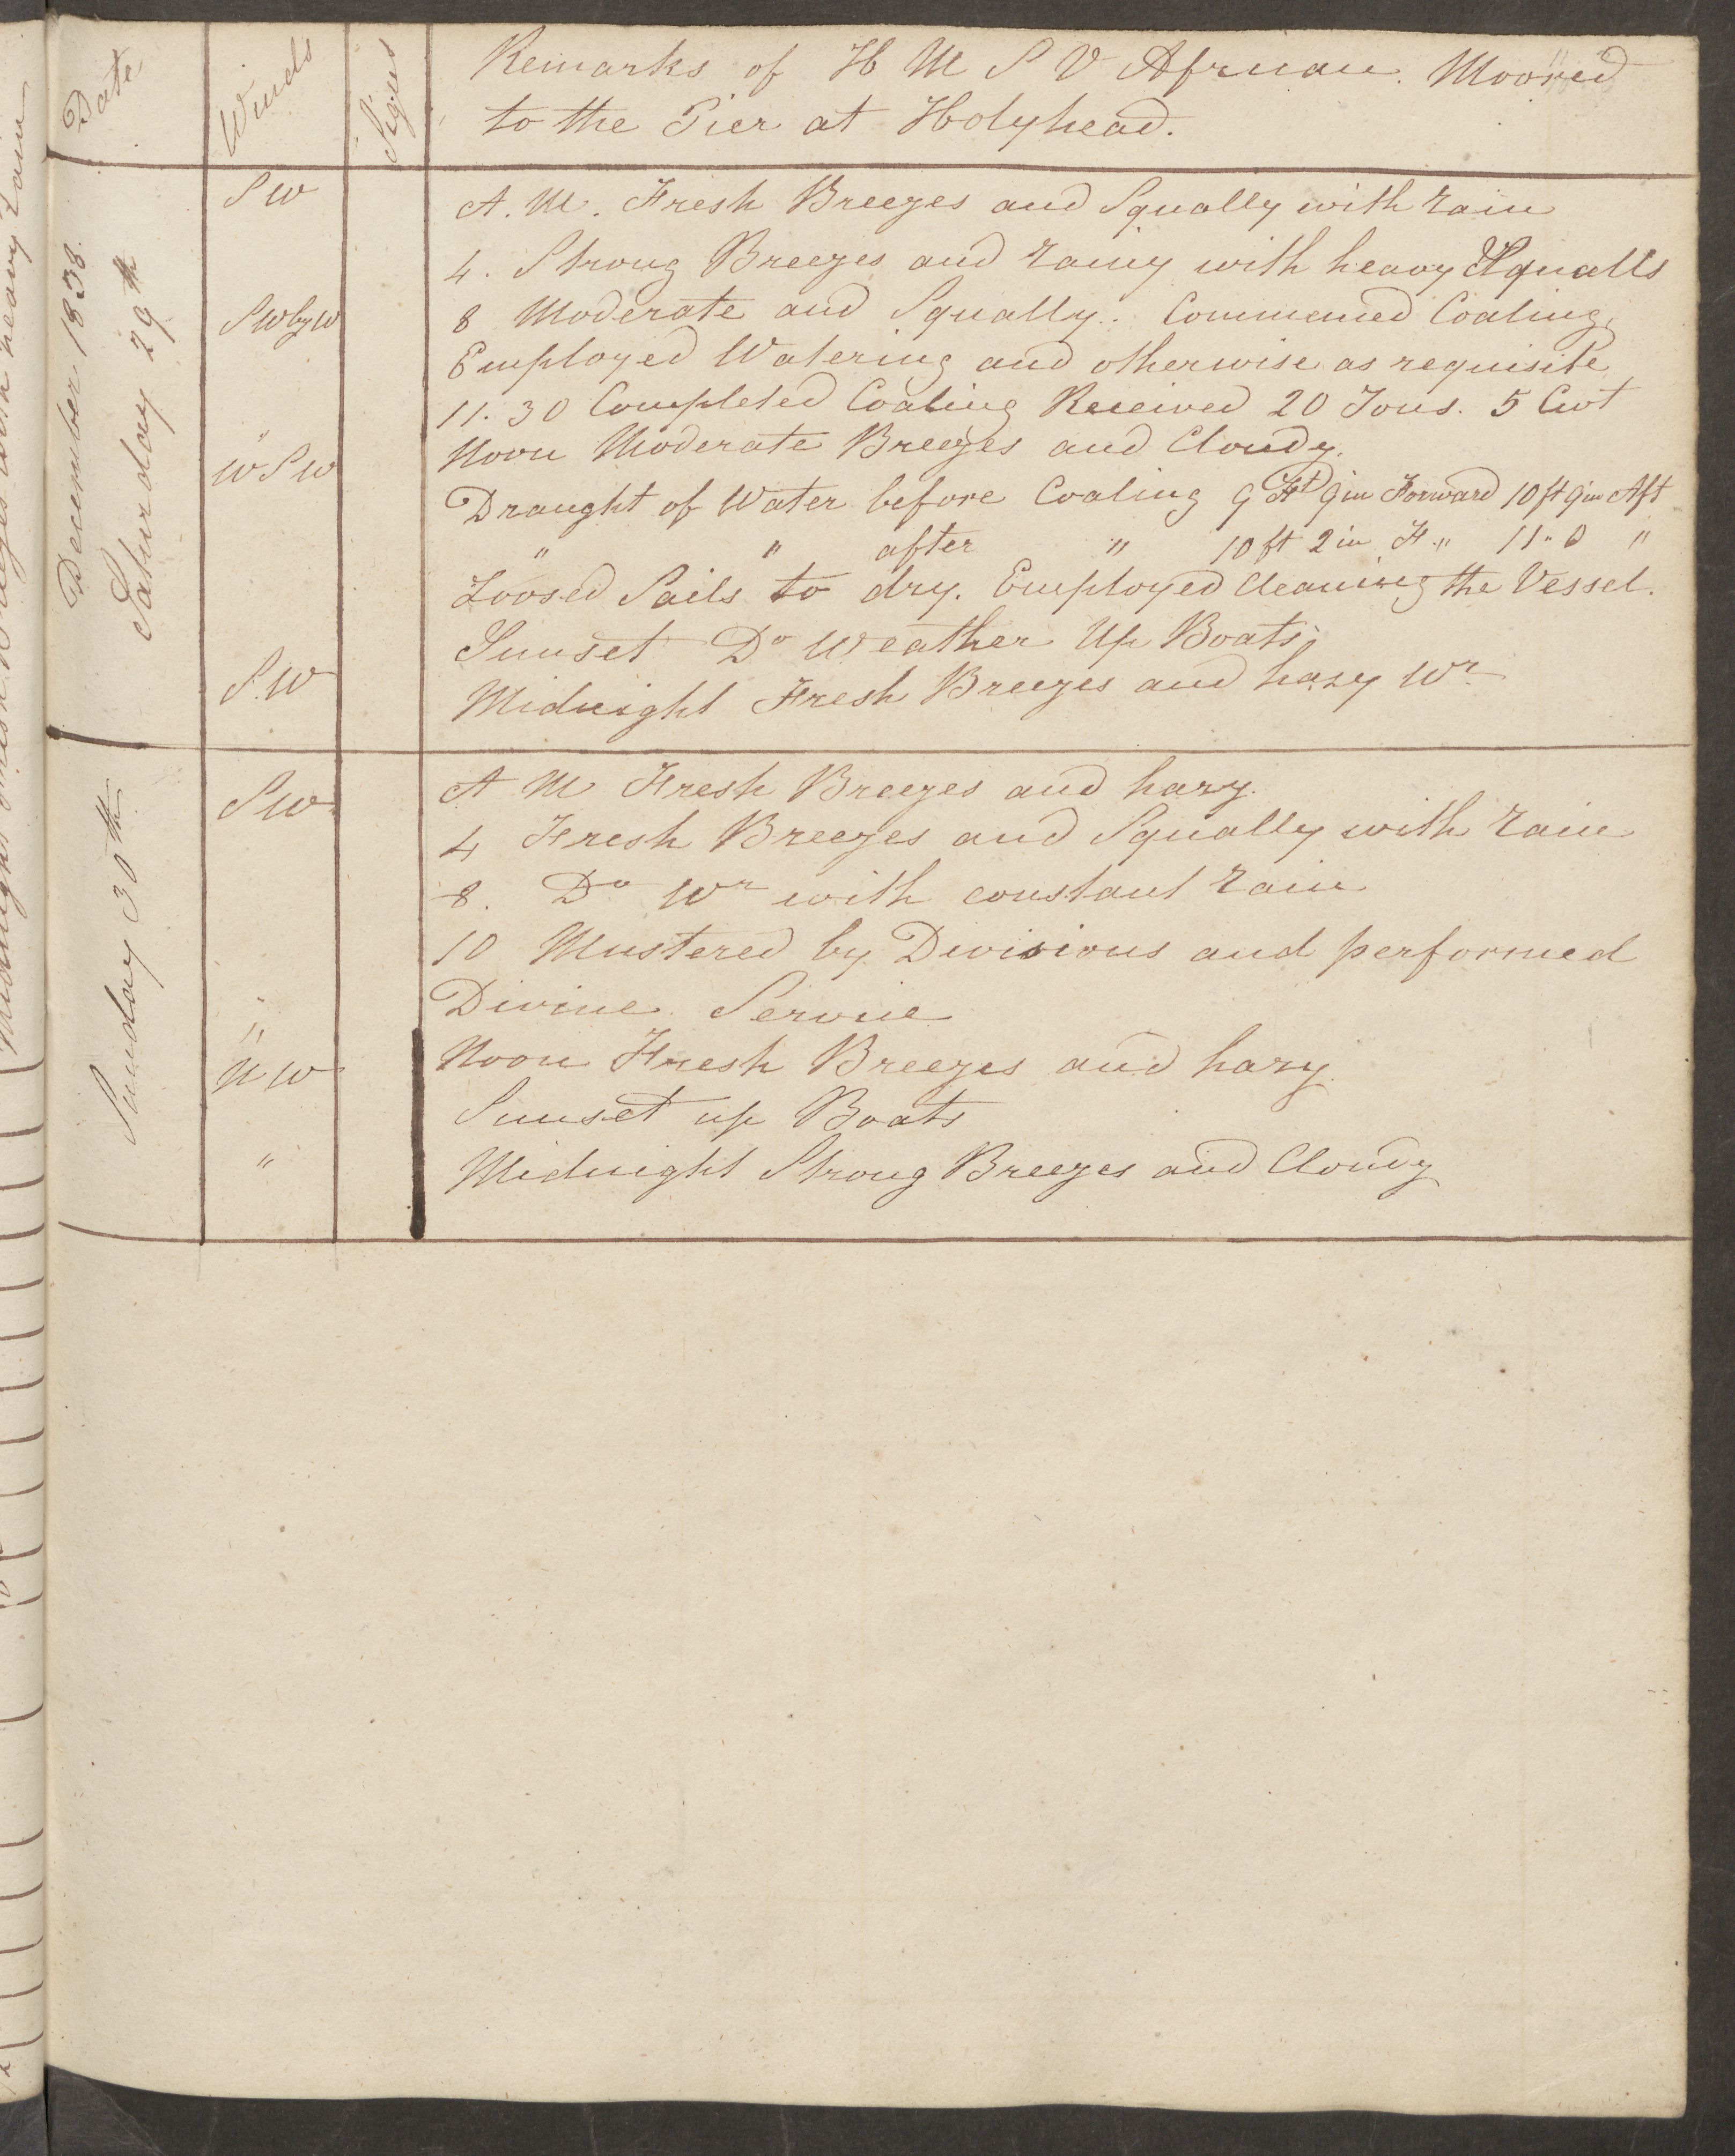 Date
Winds
Signs
Remarks of H M S V African. Moored
to the Pier at Holyhead.
December 1838.
Saturday 29th
SW
SWbyW
"
WSW
S.W
A.M. Fresh Breezes and Squally with rain
4. Strong Breezes and rainy with heavy Squalls
8 Moderate and Squally. Commenced Coaling,
Employed Watering and otherwise as requisite
11.30 Completed Coaling Received 20 Tons. 5 Cwt
Noon Moderate Breezes and Cloudy.
Draught of Water before Coaling 9 Ft 9in Forward 10ft 9in Aft
" " after " 10ft 2in F " 11.0 "
Loosed Sails to dry. Employed Cleaning the Vessel.
Sunset Do Weather Up Boats
Midnight Fresh Breezes and hazy Wr
Sunday 30th
SW
"
NW
"
A M Fresh Breezes and hazy.
4 Fresh Breezes and Squally with rain
8. Do Wr with constant rain
10 Mustered by Divisions and performed
Divine Service
Noon Fresh Breezes and hazy.
Sunset up Boats
Midnight Strong Breezes and Cloudy